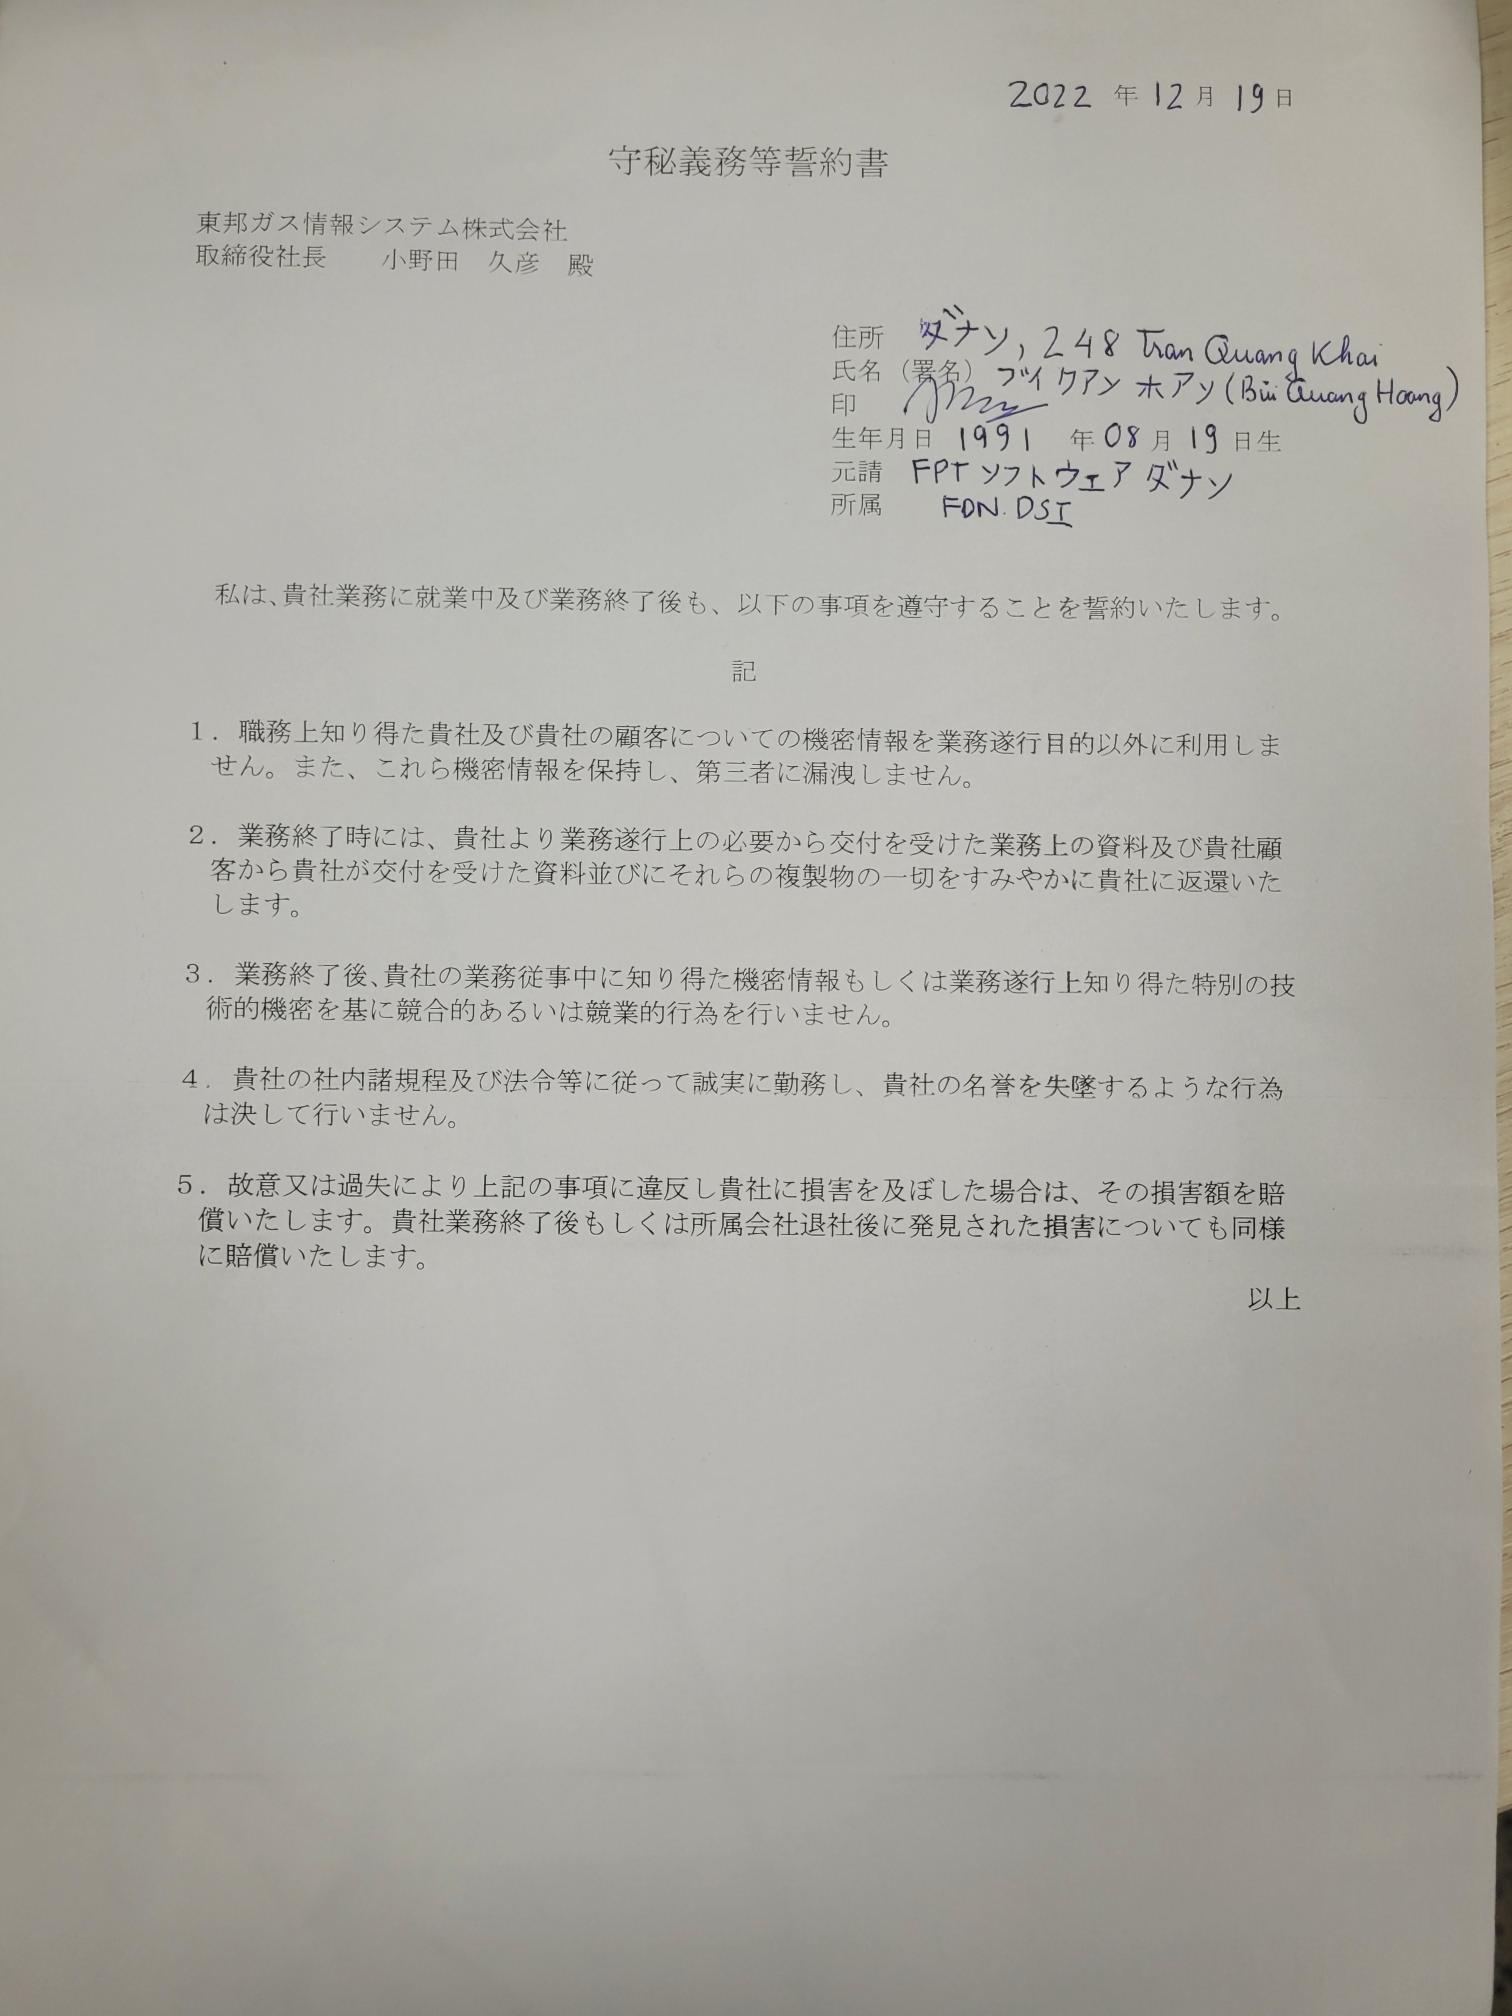 2022 年 12 月 19 日
守秘義務等誓約書
東邦ガス情報システム株式会社
取締役社長 小野田 久彦 殿
住所 ダナン, 248 Tran Quang Khai
氏名（署名） ブイ クアン ホアン (Bùi Quang Hoang)
印
生年月日 1991 年 08 月 19 日生
元請 FPT ソフトウェア ダナン
所属 FDN.DSI
私は、貴社業務に就業中及び業務終了後も、以下の事項を遵守することを誓約いたします。
記
１．職務上知り得た貴社及び貴社の顧客についての機密情報を業務遂行目的以外に利用しま
せん。また、これら機密情報を保持し、第三者に漏洩しません。
２．業務終了時には、貴社より業務遂行上の必要から交付を受けた業務上の資料及び貴社顧
客から貴社が交付を受けた資料並びにそれらの複製物の一切をすみやかに貴社に返還いた
します。
３．業務終了後、貴社の業務従事中に知り得た機密情報もしくは業務遂行上知り得た特別の技
術的機密を基に競合的あるいは競業的行為を行いません。
４．貴社の社内諸規程及び法令等に従って誠実に勤務し、貴社の名誉を失墜するような行為
は決して行いません。
５．故意又は過失により上記の事項に違反し貴社に損害を及ぼした場合は、その損害額を賠
償いたします。貴社業務終了後もしくは所属会社退社後に発見された損害についても同様
に賠償いたします。
以上